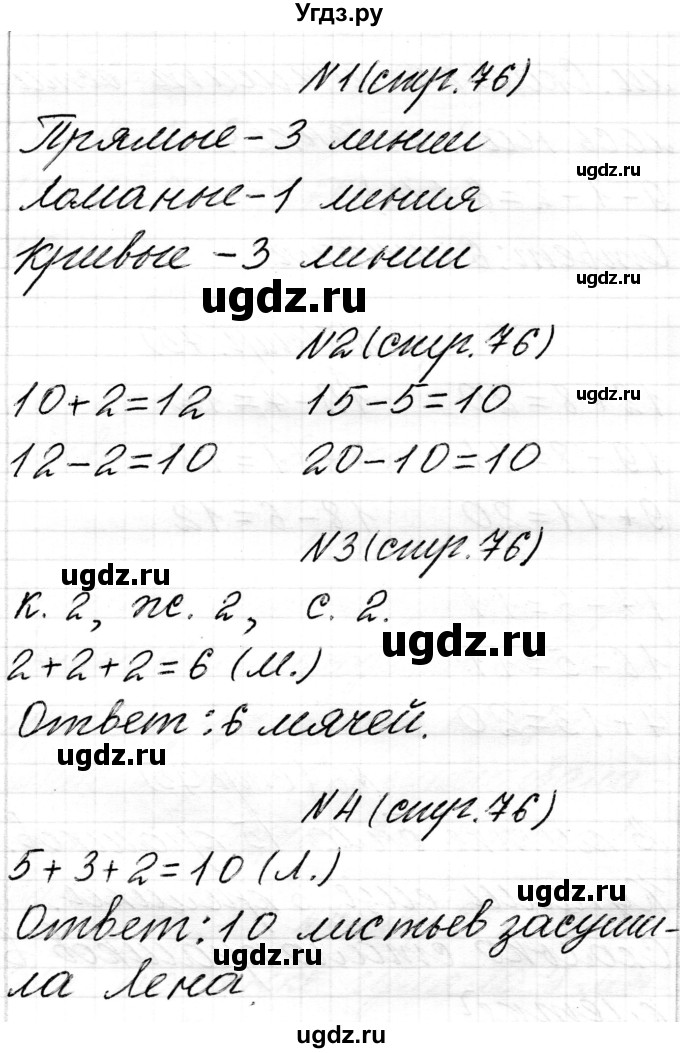 Угдз.ру
№1 (стр. 76)
Прямые - 3 линии
ugdz.ru
Ломаные - 1 линия
Кривые - 3 линии
ugdz.ru
ugdz.ru
№2 (стр. 76)
10+2=12 15-5=10
ugdz.ru
12-2=10 20-10=10
№3 (стр. 76)
ugdz.ru
к. 2, ж. 2, с. 2.
ugdz.ru
2+2+2=6 (м.)
Ответ: 6 мячей.
ugdz.ru
№4 (стр. 76)
5+3+2=10 (л.)
ugdz.ru
Ответ: 10 листьев засуши-
ла Лена.
ugdz.ru
ugdz.ru